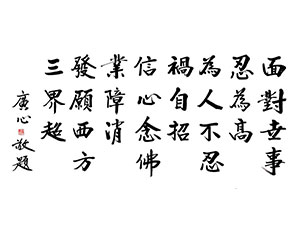 面對世事
忍為高
為人不忍
禍自招
信心念佛
業障消
發願西方
三界超
廣心敬題